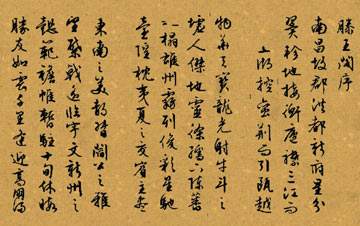 滕王閣序
南昌故郡洪都新府星分
翼軫地接衡廬襟三江而
五湖控蠻荊而引甌越
物華天寶龍光射牛斗之
墟人傑地靈徐孺下陳蕃
之榻雄州霧列俊彩星馳
臺隍枕夷夏之交賓主盡
東南之美都督閻公之雅
望棨戟遙臨宇文新州之
懿範襜帷暫駐十旬休暇
勝友如雲千里逢迎高朋滿